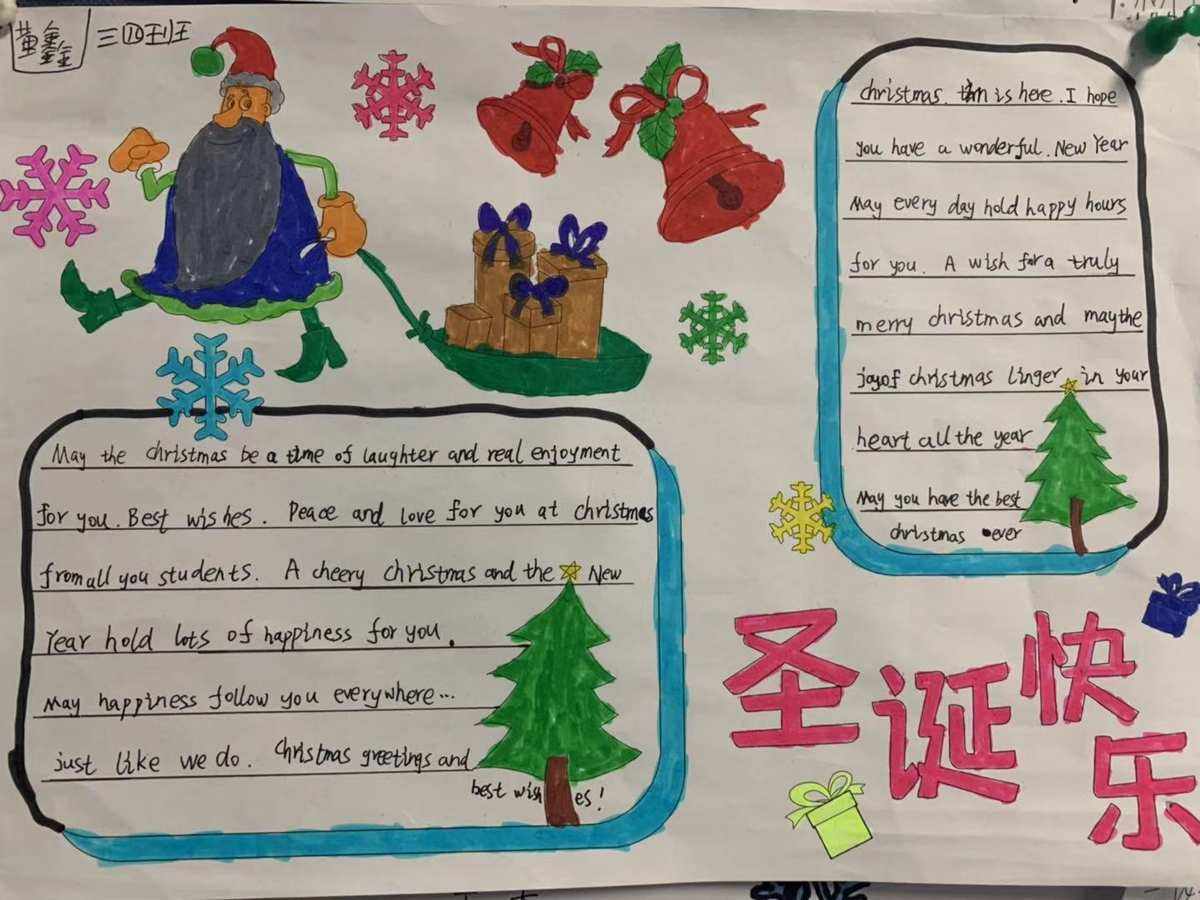 黄鑫
christmas. is here. I hope
you have a wonderful. New Year
May every day hold happy hours
for you. A wish for a truly
merry christmas and may the
joy of christmas linger in your
heart all the year
May you have the best
christmas ever
May the christmas be a time of laughter and real enjoyment
for you. Best wishes. Peace and love for you at christmas
from all you students. A cheery christmas and the New
Year hold lots of happiness for you.
May happiness follow you everywhere...
just like we do. Christmas greetings and
best wishes!
圣诞快乐